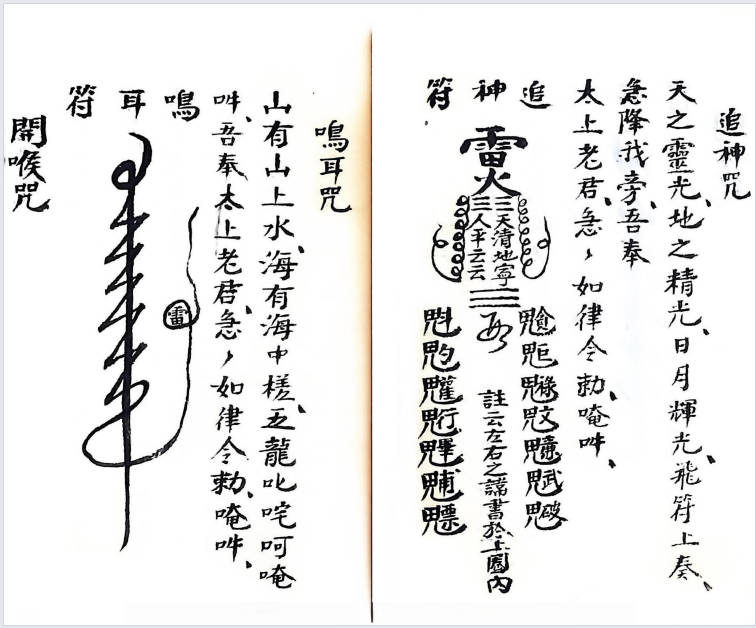 追神咒
天之靈光、地之精光、日月輝光、飛符上奏、
急降我旁、吾奉
太上老君、急々如律令勅、唵吽、
追神符
雷火
天清地寧
人平云云
魁
魒
註云左右之諱書於上圈內
鳴耳咒
山有山上水、海有海中槎、五龍叱咤呵唵
吽、吾奉太上老君、急々如律令勅、唵吽、
鳴耳符
雷
開喉咒